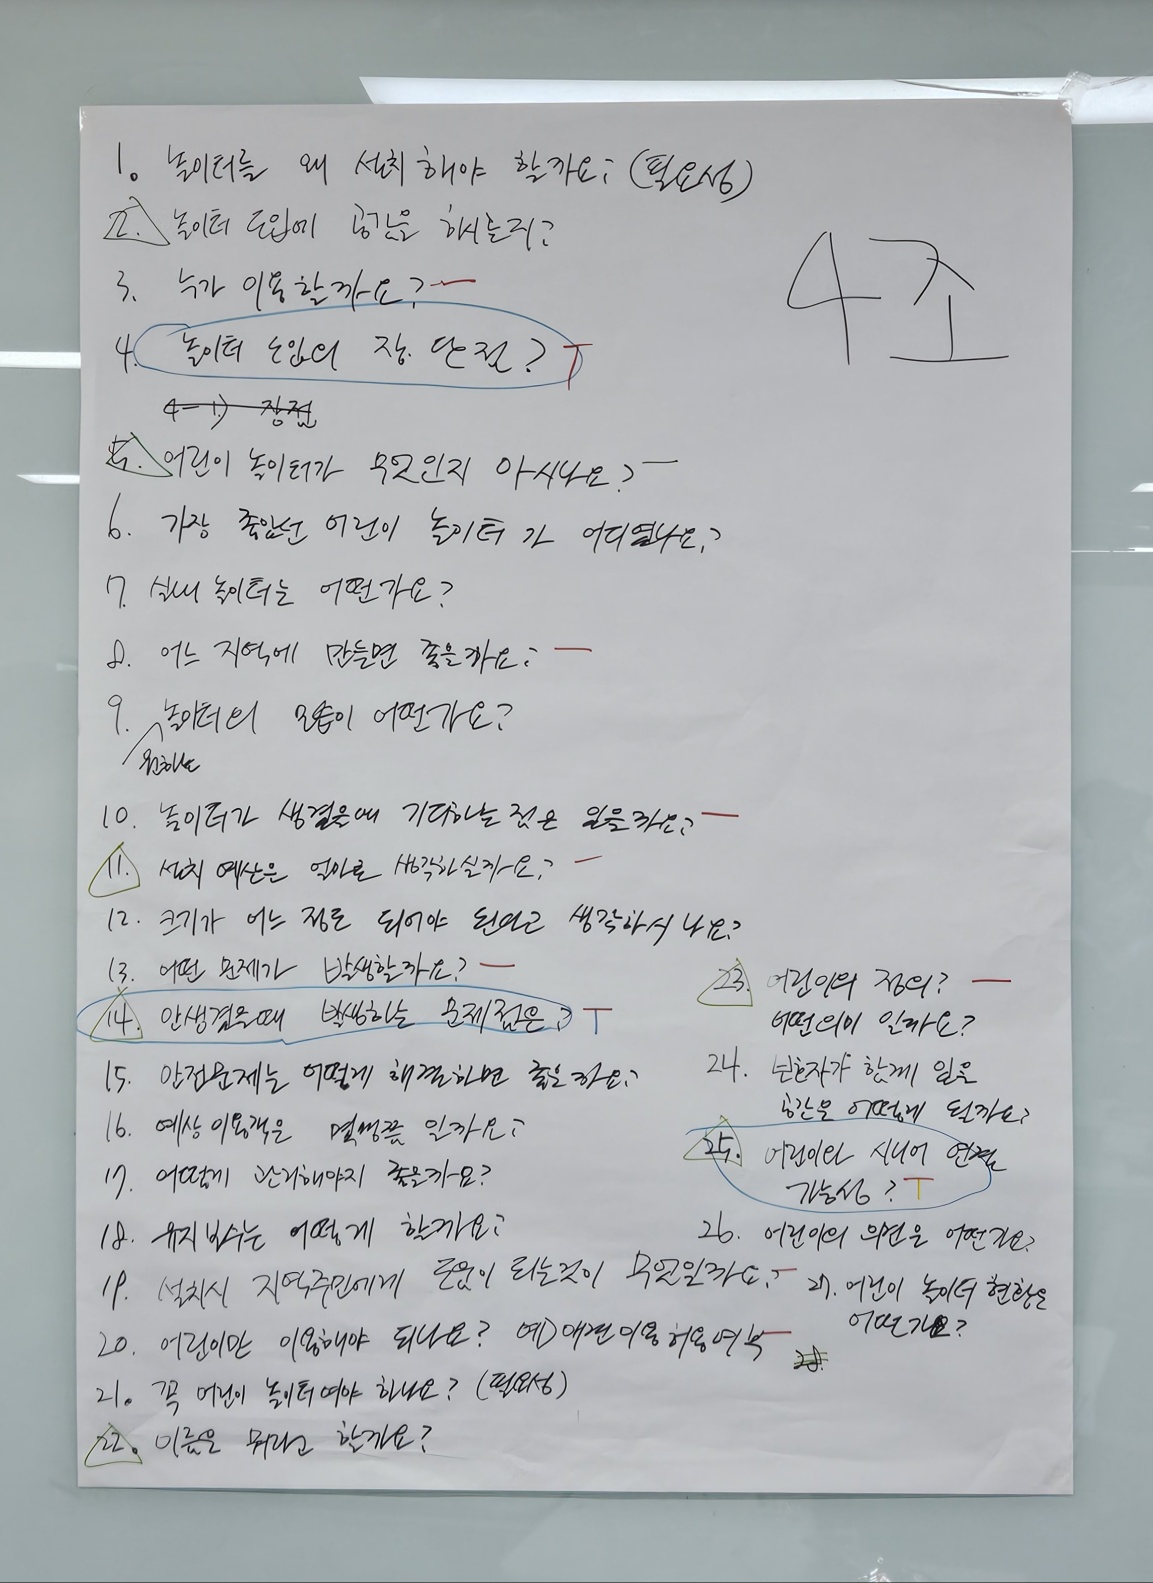 4조
1. 놀이터를 왜 설치해야 할까요? (필요성)
2. 놀이터 도입에 공감을 하시는지?
3. 누가 이용할까요?
4. 놀이터 도입의 장.단점?
4-1) 장점
5. 어린이 놀이터가 무엇인지 아시나요?
6. 가장 좋았던 어린이 놀이터가 어디였나요?
7. 실내 놀이터는 어떤가요?
8. 어느 지역에 만들면 좋을까요?
9. 놀이터의 모습이 어떤가요?
원하는
10. 놀이터가 생겼을때 기대하는 점은 있을까요?
11. 설치 예산은 얼마로 생각하실까요?
12. 크기가 어느 정도 되어야 된다고 생각하시나요?
13. 어떤 문제가 발생할까요?
14. 안생겼을때 발생하는 문제점은?
15. 안전문제는 어떻게 해결하면 좋을까요?
16. 예상 이용객은 몇명쯤 일까요?
17. 어떻게 관리해야지 좋을까요?
18. 유지보수는 어떻게 할까요?
19. 설치시 지역주민에게 도움이 되는것이 무엇일까요?
20. 어린이만 이용해야 되나요? 예) 애견이용허용여부
21. 꼭 어린이 놀이터여야 하나요? (필요성)
22. 이름은 뭐라고 할까요?
23. 어린이의 정의?
어떤의미 일까요?
24. 보호자가 함께 있을
공간은 어떻게 될까요?
25. 어린이와 시니어 연결
가능성?
26. 어린이의 의견은 어떤가요?
27. 어린이 놀이터 현황은
어떤가요?
28.